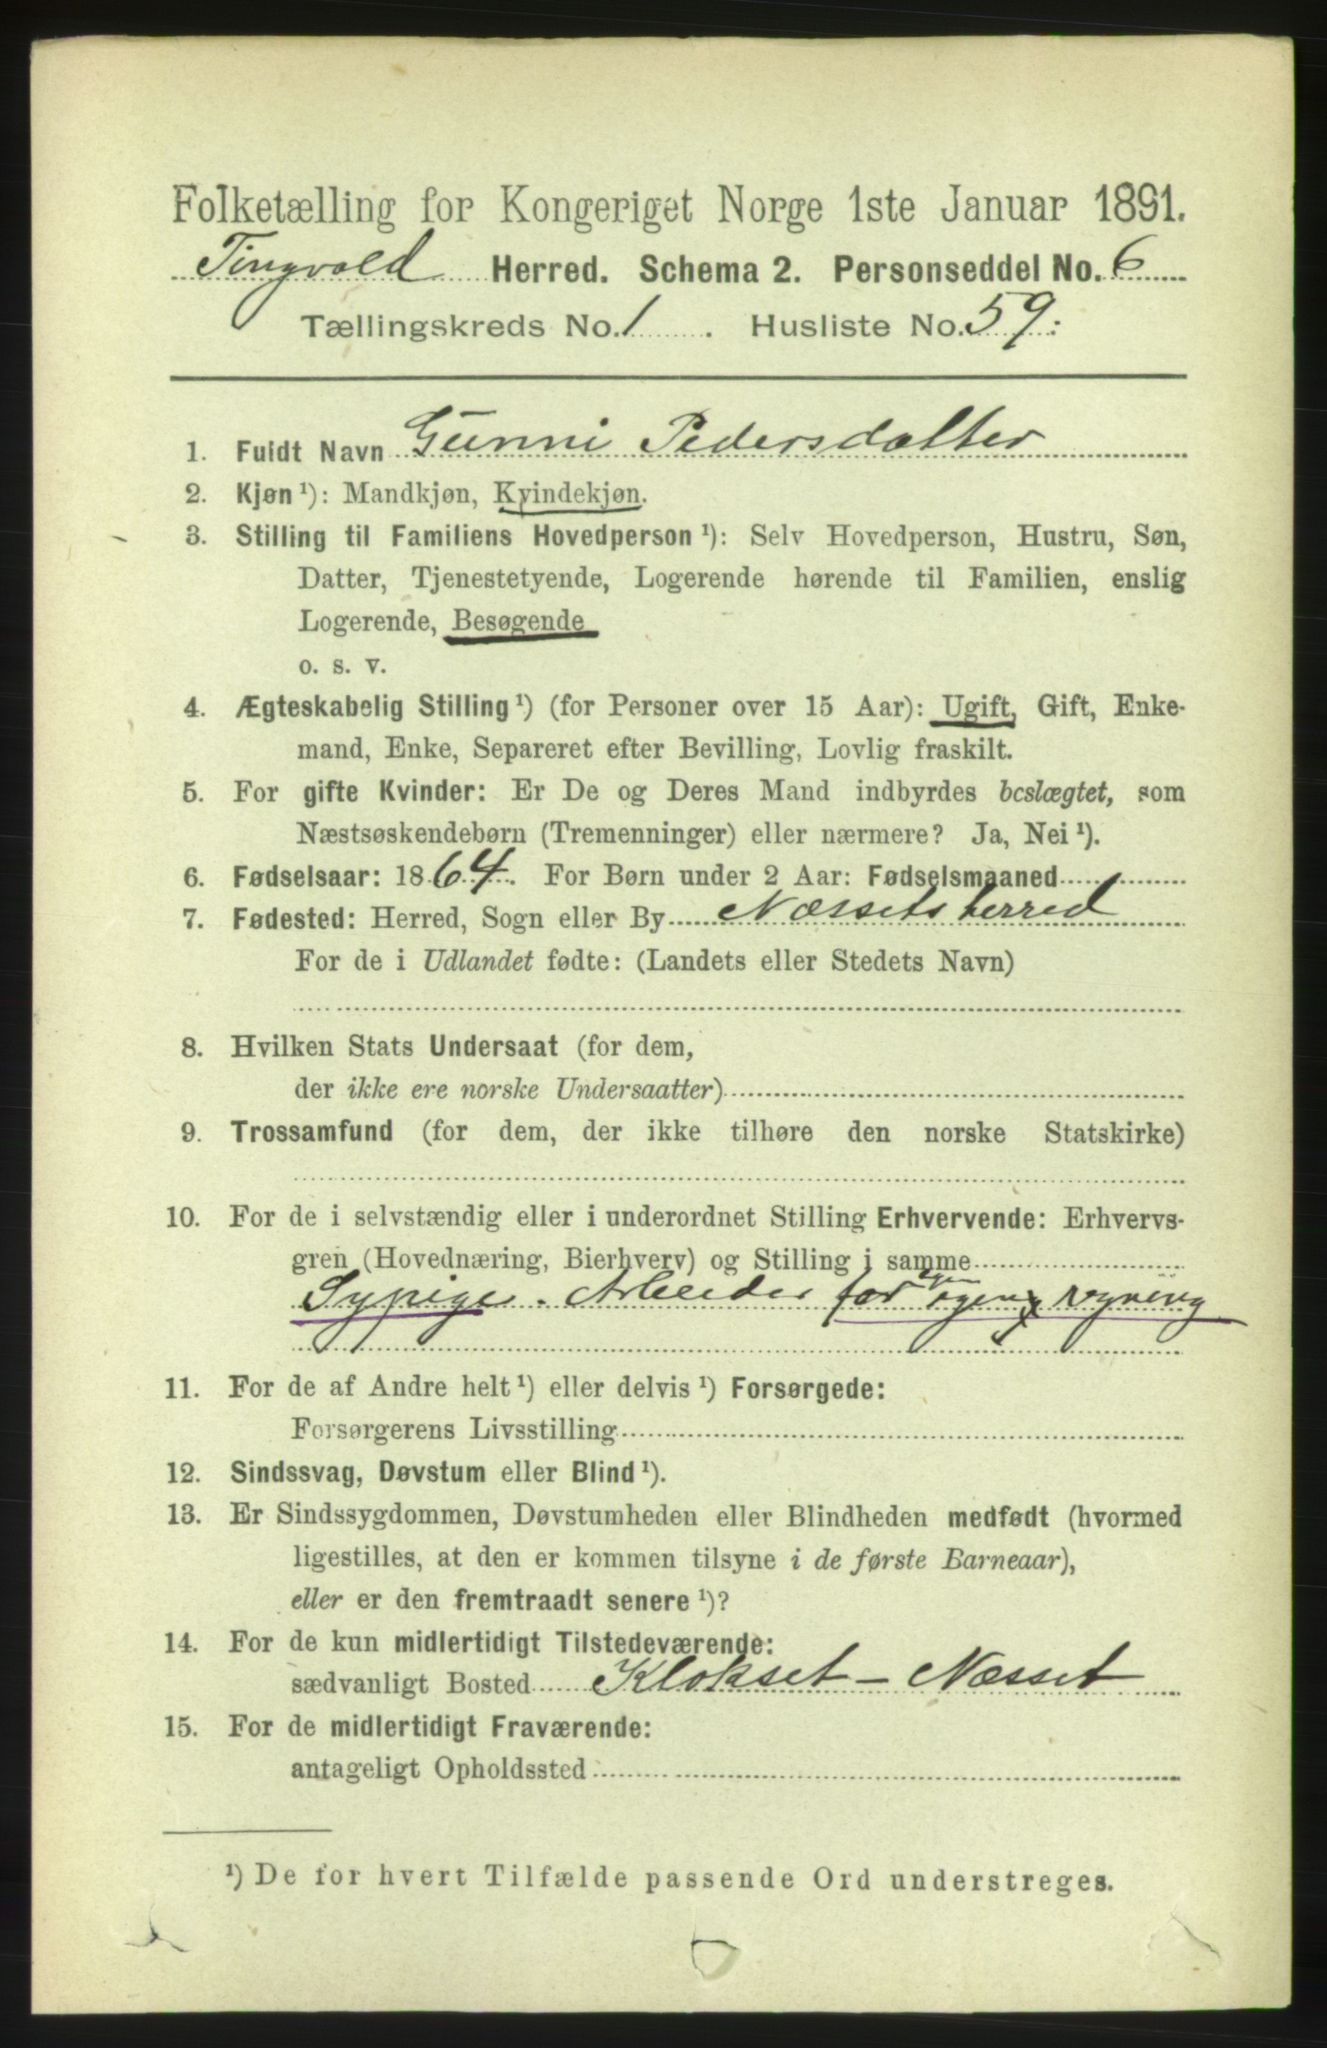 Folketælling for Kongeriget Norge 1ste Januar 1891.
Tingvold Herred. Schema 2. Personseddel No. 6
Tællingskreds No. 1. Husliste No. 59.
1. Fuldt Navn Gunni Pedersdatter
2. Kjøn ¹): Mandkjøn, Kvindekjøn.
3. Stilling til Familiens Hovedperson ¹): Selv Hovedperson, Hustru, Søn,
Datter, Tjenestetyende, Logerende hørende til Familien, enslig
Logerende, Besøgende
o. s. v.
4. Ægteskabelig Stilling ¹) (for Personer over 15 Aar): Ugift, Gift, Enke-
mand, Enke, Separeret efter Bevilling, Lovlig fraskilt.
5. For gifte Kvinder: Er De og Deres Mand indbyrdes beslægtet, som
Næstsøskendebørn (Tremenninger) eller nærmere? Ja, Nei ¹).
6. Fødselsaar: 1864. For Børn under 2 Aar: Fødselsmaaned
7. Fødested: Herred, Sogn eller By Næssets herred
For de i Udlandet fødte: (Landets eller Stedets Navn)
8. Hvilken Stats Undersaat (for dem,
der ikke ere norske Undersaatter)
9. Trossamfund (for dem, der ikke tilhøre den norske Statskirke)
10. For de i selvstændig eller i underordnet Stilling Erhvervende: Erhvervs-
gren (Hovednæring, Bierhverv) og Stilling i samme
Sypige. Arbeider for egen
11. For de af Andre helt ¹) eller delvis ¹) Forsørgede:
Forsørgerens Livsstilling
12. Sindssvag, Døvstum eller Blind ¹).
13. Er Sindssygdommen, Døvstumheden eller Blindheden medfødt (hvormed
ligestilles, at den er kommen tilsyne i de første Barneaar),
eller er den fremtraadt senere ¹)?
14. For de kun midlertidigt Tilstedeværende:
sædvanligt Bosted Klokset - Næsset
15. For de midlertidigt Fraværende:
antageligt Opholdssted
¹) De for hvert Tilfælde passende Ord understreges.